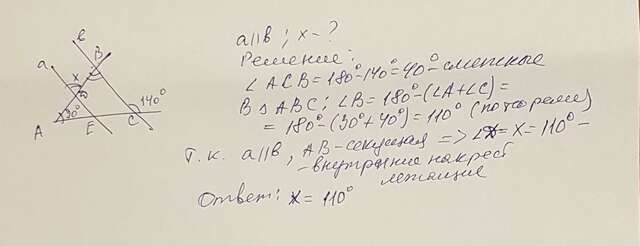 a||b ; x - ?
Решение:
∠ACB = 180° - 140° = 40° - смежные
В △ ABC ; ∠B = 180° - (∠A + ∠C) =
= 180° - (30° + 40°) = 110° (по теореме)
Т.к. a||b, AB - секущая => ∠ = x = 110° -
- внутренние накрест
лежащие
Ответ: x = 110°
a
b
B
x
D
30°
140°
A
E
C